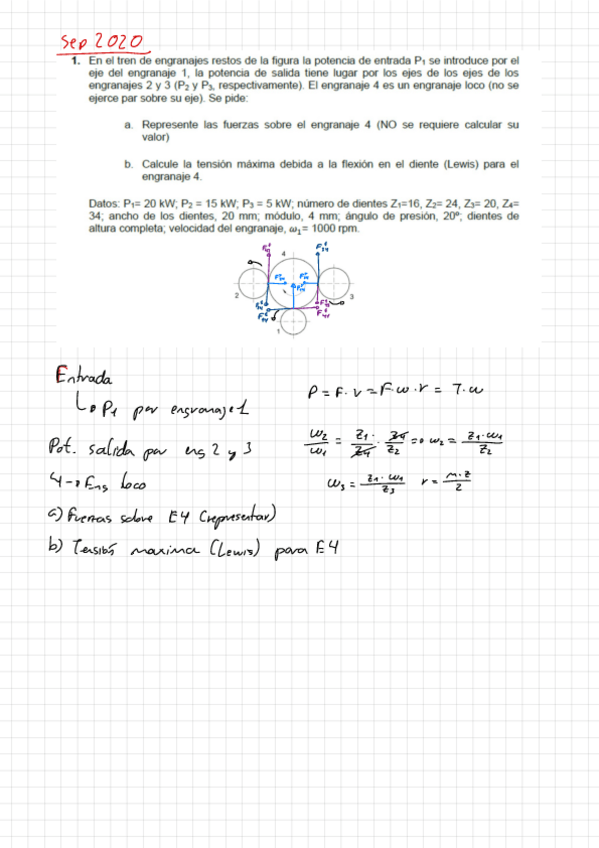 Sep 2020
1. En el tren de engranajes restos de la figura la potencia de entrada P1 se introduce por el
eje del engranaje 1, la potencia de salida tiene lugar por los ejes de los ejes de los
engranajes 2 y 3 (P2 y P3, respectivamente). El engranaje 4 es un engranaje loco (no se
ejerce par sobre su eje). Se pide:
a. Represente las fuerzas sobre el engranaje 4 (NO se requiere calcular su
valor)
b. Calcule la tensión máxima debida a la flexión en el diente (Lewis) para el
engranaje 4.
Datos: P1= 20 kW; P2 = 15 kW; P3 = 5 kW; número de dientes Z1=16, Z2= 24, Z3= 20, Z4=
34; ancho de los dientes, 20 mm; módulo, 4 mm; ángulo de presión, 20º; dientes de
altura completa; velocidad del engranaje, ω1= 1000 rpm.
4
2
3
1
Entrada
P1 por engranaje 1
P = F·v = F·w·r = T·w
Pot. salida por eng 2 y 3
w2/w1 = z1/z4 · z4/z2 => w2 = z1·w1/z2
4 -> Eng loco
w3 = z1·w1/z3 r = m·z/2
a) Fuerzas sobre E4 (representar)
b) Tensión maxima (Lewis) para E4